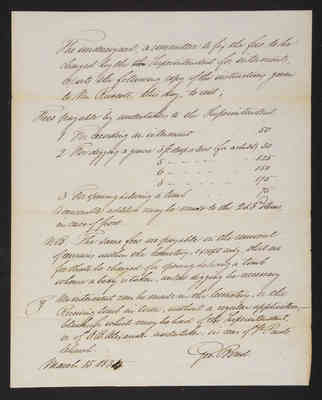 The undersigned, a committee to fix the fees to be
charged by the Superintendent for interments,
the following copy of the instructions given
to Mr. Russell, this day, to wit,
Fees payable by undertakers to the Superintendent
1 For recording an interment 50
2 For digging a grave 3 ft deep &
5 " " " 1.25
6 " " " 1.50
6 " " " 1.75
3 For opening & closing a tomb 75
addition may be made to the 2d &
in case of frost.
N.B. The same fees are payable on the removal
of remains within the Cemetery, except only, that no
fee shall be charged for opening & closing a tomb
whence a body is taken, unless digging be necessary
No interment can be made in the Cemetery, or the
Receiving tomb in town, without a regular application,
blanks for which may be had of the Superintendent
or of undertaker, in rear of St Pauls
Church.
Geo. Bond
March 15 18